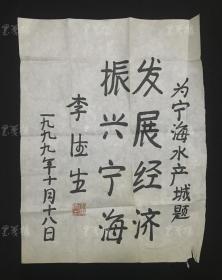 为宁海水产城题
发展经济
振兴宁海
李德生
一九九九年十月十八日